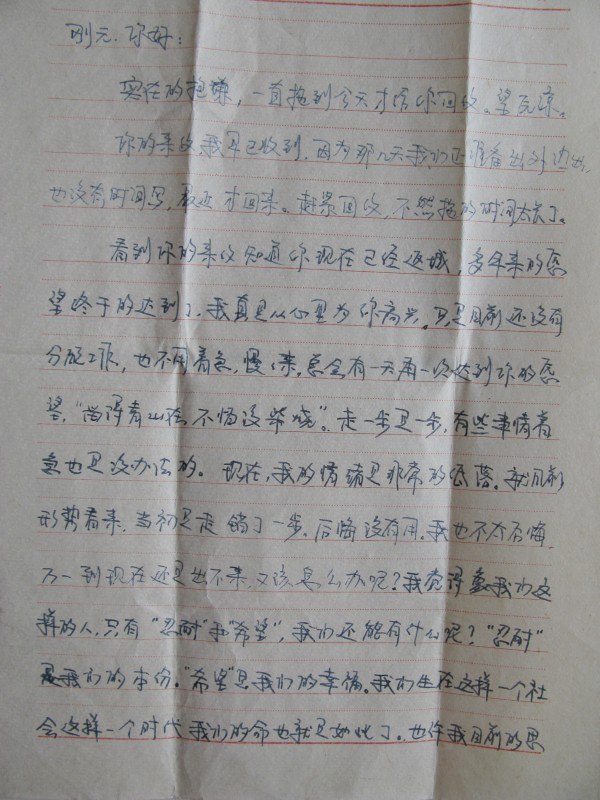 刚元.你好:
实在的抱嫌,一直拖到今天才给你回收。望见谅。
你的来收我早已收到.因为那几天我们正准备出外边
也没有时间写,最近才回来。赶紧回收,不然拖的时间太长了。
看到你的来收知道你现在已经返城,多年来的愿
望终于的达到了.我真是从心里为你高兴.只是目前还没有
分配工作,也不用着急,慢々来,总会有一天再一次达到你的愿
望,"留得青山在,不怕没柴烧"。走一步是一步,有些事情着
急也是没办法的。现在,我的情绪是非常的低落。就目前
形势看来,当初是走错了一步.后悔没有用.我也不太后悔.
万一到现在还是出不来,又该怎么办呢?我觉得我们这
样的人,只有"忍耐"和"希望",我们还能有什么呢?"忍耐"
是我们的本份."希望"是我们的幸福。我们生在这样一个社
会这样一个时代我们的命也就是如此了。也许我目前的思